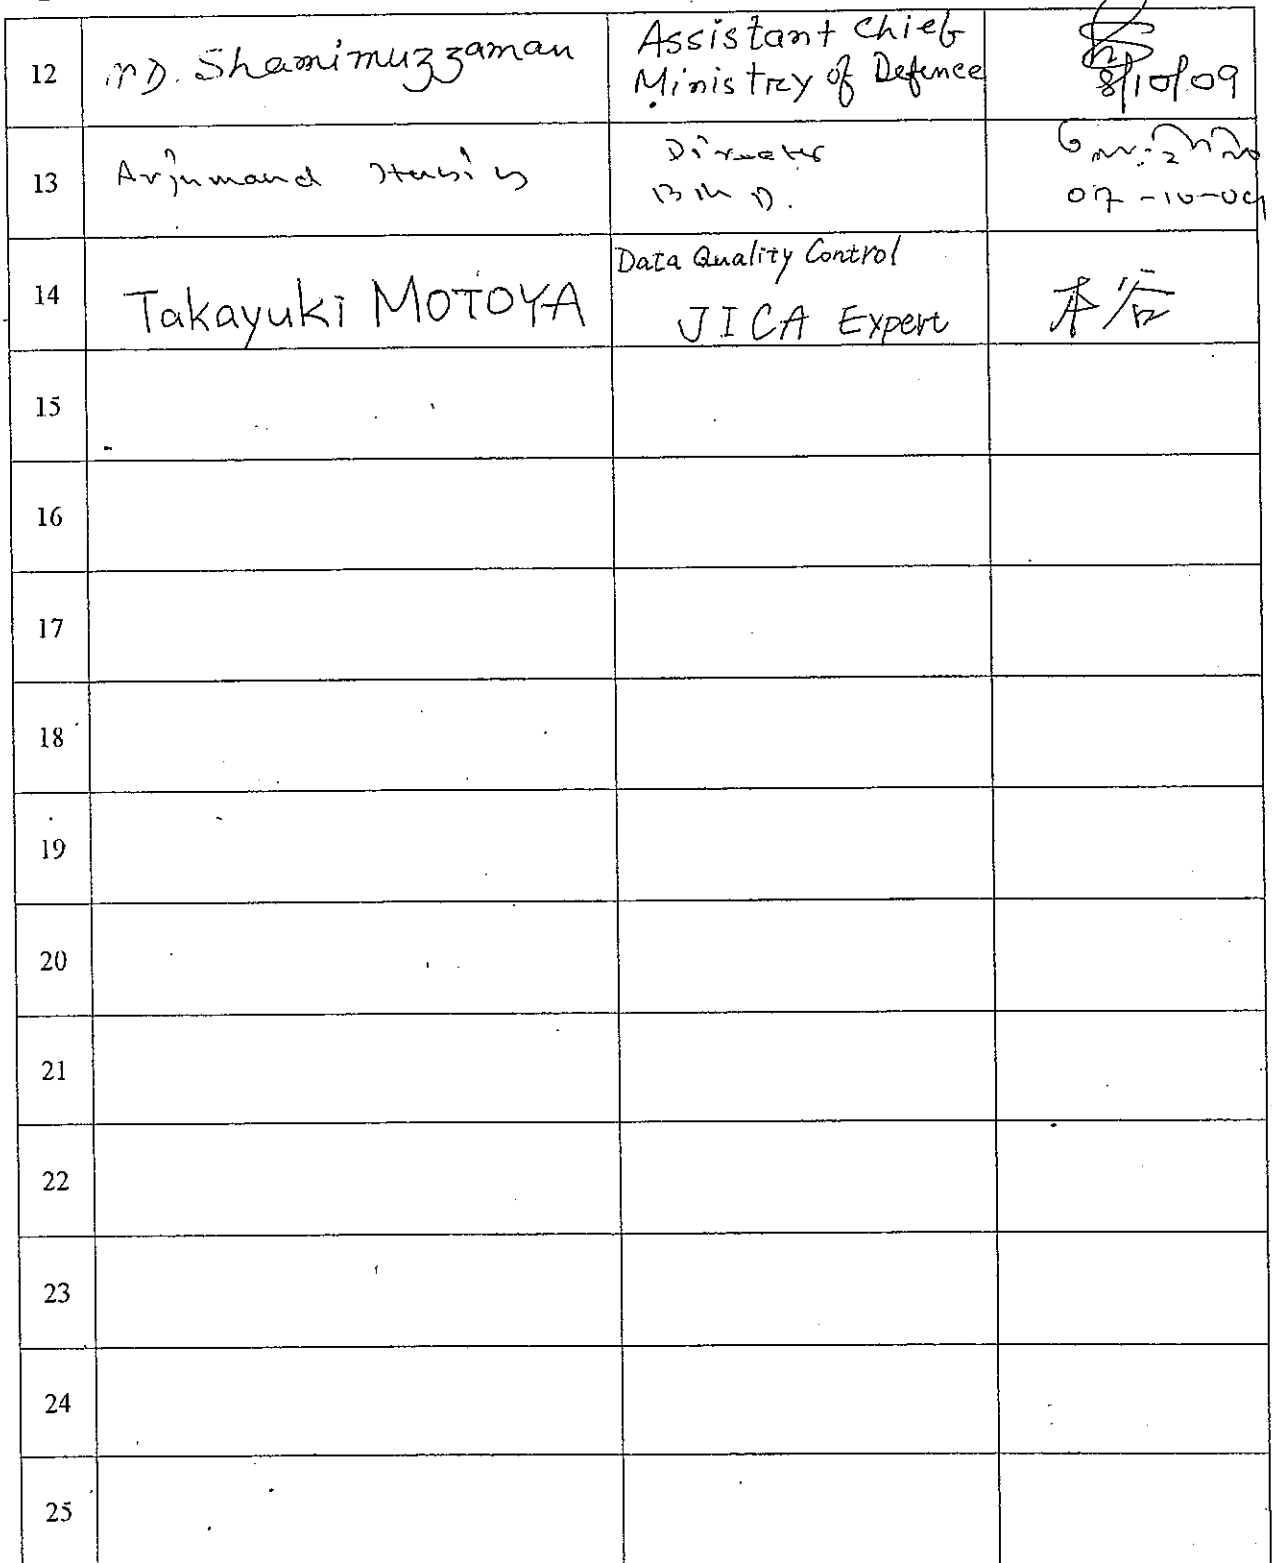 12 MD. Shamimuzzaman Assistant Chief
Ministry of Defence 8/10/09
13 Arjumand Habib Director
BMD. 07-10-09
14 Takayuki MOTOYA Data Quality Control
JICA Expert 本谷
15
16
17
18
19
20
21
22
23
24
25